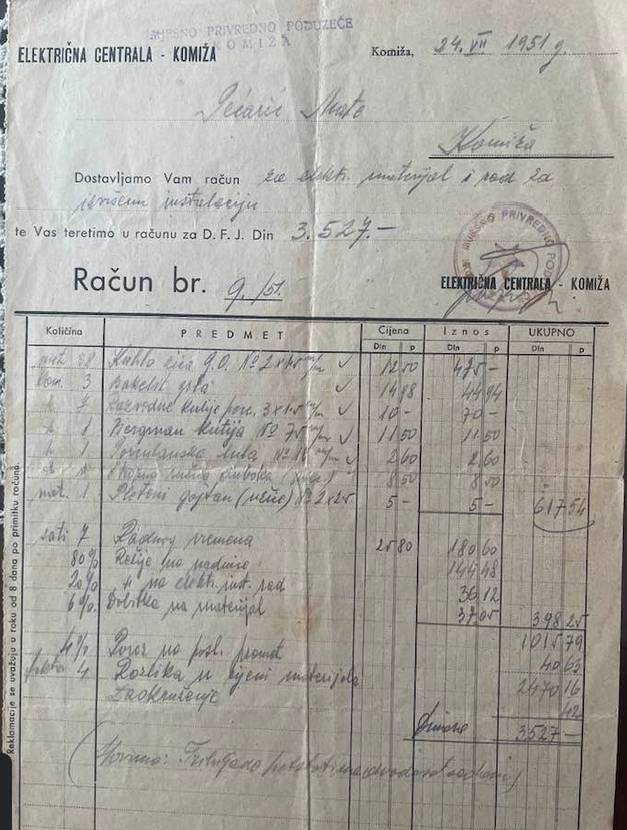 MJESNO PRIVREDNO PODUZEĆE
KOMIŽA
ELEKTRIČNA CENTRALA - KOMIŽA
Komiža, 24. VII 1951 g.
Pećarić Mate
Komiža
Dostavljamo Vam račun za elektr. materijal i rad za
izvršenu instalaciju
te Vas teretimo u računu za D. F. J. Din 3.527.-
MJESNO PRIVREDNO POD
Račun br. 9./51.
ELEKTRIČNA CENTRALA - KOMIŽA
Količina PREDMET Cijena Iznos UKUPNO
Din p Din p Din p
met. 38 Kuhlo žica 9.0. No 2x1.5 m/m 12 50 475 -
kom. 3 Bakelit grla 14 98 44 94
" 7 Razvodne kutije 3x1.5 m/m 10 - 70 -
" 1 Bergman kutija No 7.5 m/m 11 50 11 50
" 1 Porculanska No m/m 2 60 2 60
" 1 8 50 8 50
met. 1 Pleteni gajtan No 2x2.5 5 - 5 - 617 54
sati 7 Radnog vremena 25 80 180 60
80% Režije na nadnice 144 48
20% " na elektr. inst. rad 36 12
6% Dobitka na materijal 37 05 398 25
1015 79
4% Porez na posl. promet 40 63
faktor 4 Razlika u cijeni materijala 2470 16
Zaokruženje 42
Dinara 3527 -
(Slovima: )
Reklamacije se uvažuju u roku od 8 dana po primitku računa.